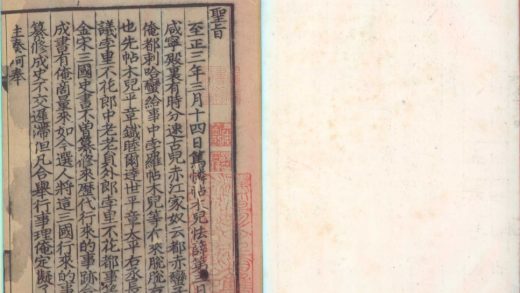 聖旨
至正三年三月十四日篤憐帖木兒怯薛第三日
咸寧殿裏有時分速古兒赤江家奴云都赤蠻
俺都剌哈蠻給事中孛羅帖木兒等有來脫脫右
也先帖木兒平章鐵睦爾達世平章太平右丞長
議孛里不花郎中老老員外郎孛里不花都事
金宋三國史書不曾纂修來歷代行來的事跡合
成書有俺商量來如今選人將這三國行來的事
纂修成史不交遲滯但凡合舉行事理俺定擬了
主奏呵奉